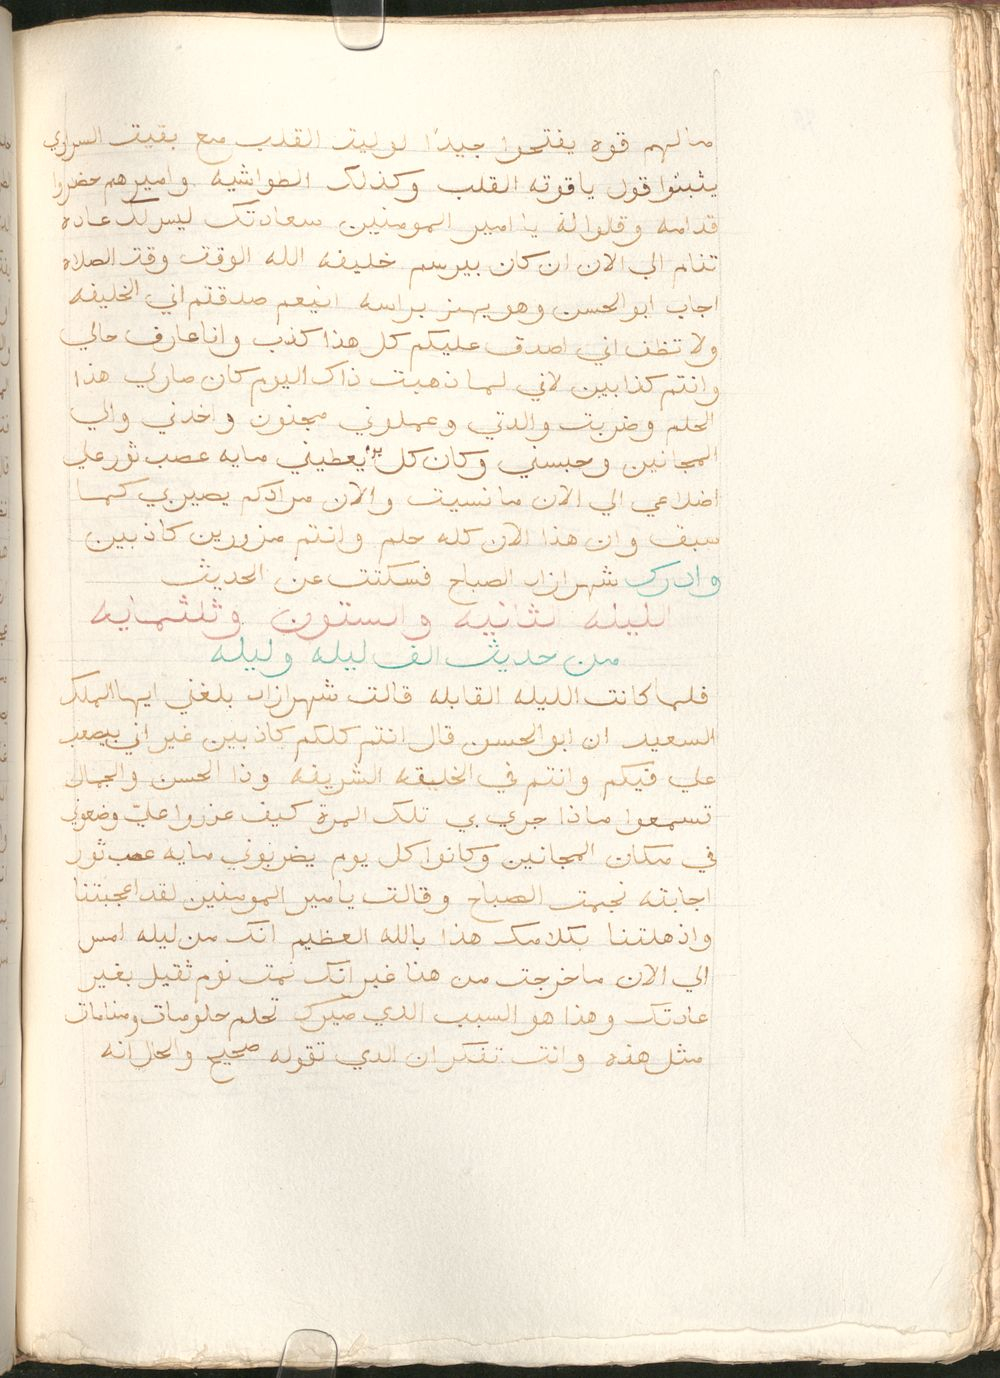 مالهم قوه يفتحوا جيدًا لوليت القلب مع بقيت السراري
يثبتوا قول ياقوته القلب وكذلك الطواشيه واميرهم حضروا
قدامه وقلوا له يا امير المومنين سعادتك ليس لك عاده
تنام الي الان ان كان بيرسم خليفه الله الوقت وقت الصلاه
اجاب ابو الحسن وهو يهز براسه انيعم صدقتم اني الخليفه
ولا تظنف اني اصدق عليكم كل هذا كذب وانا عارف حالي
وانتم كذابين لاني لما ذهبت ذاك اليوم كان صار لي هذا
الحلم وضربت والدتي وعملوني مجنون واخدني والي
المجانين وحبسني وكان كل يوم يعطيني مايه عصب ثور علي
اضلاعي الي الان ما نسيت والان مرادكم يصير بي كما
سبق وان هذا الان كله حلم وانتم مزورين كاذبين
وادرك شهرازاد الصباح فسكتت عن الحديث
الليله الثانيه والستون وثلثمايه
من حديث الف ليله وليله
فلما كانت الليله القابله قالت شهرازاد بلغني ايها الملك
السعيد ان ابو الحسن قال انتم كلكم كاذبين غير اني بيصعب
علي فيكم وانتم في الخليقه الشريفه وذا الحسن والجمال
تسمعوا ماذا جري بي تلك المرة كيف عزروا عليّ وضعوني
في مكان المجانين وكانوا كل يوم يضربوني مايه عصب ثور
اجابته نجمت الصباح وقالت يامير المومنين لقد اعجبتنا
واذهلتنا بكلامك هذا بالله العظيم انك من ليله امس
الي الان ما خرجت من هنا غير انك نمت نوم ثقيل بغير
عادتك وهذا هو السبب الذي صيرك تحلم حلومات ومنامات
مثل هذه وانت تفتكر ان الدي تقوله صحيح والحال انه